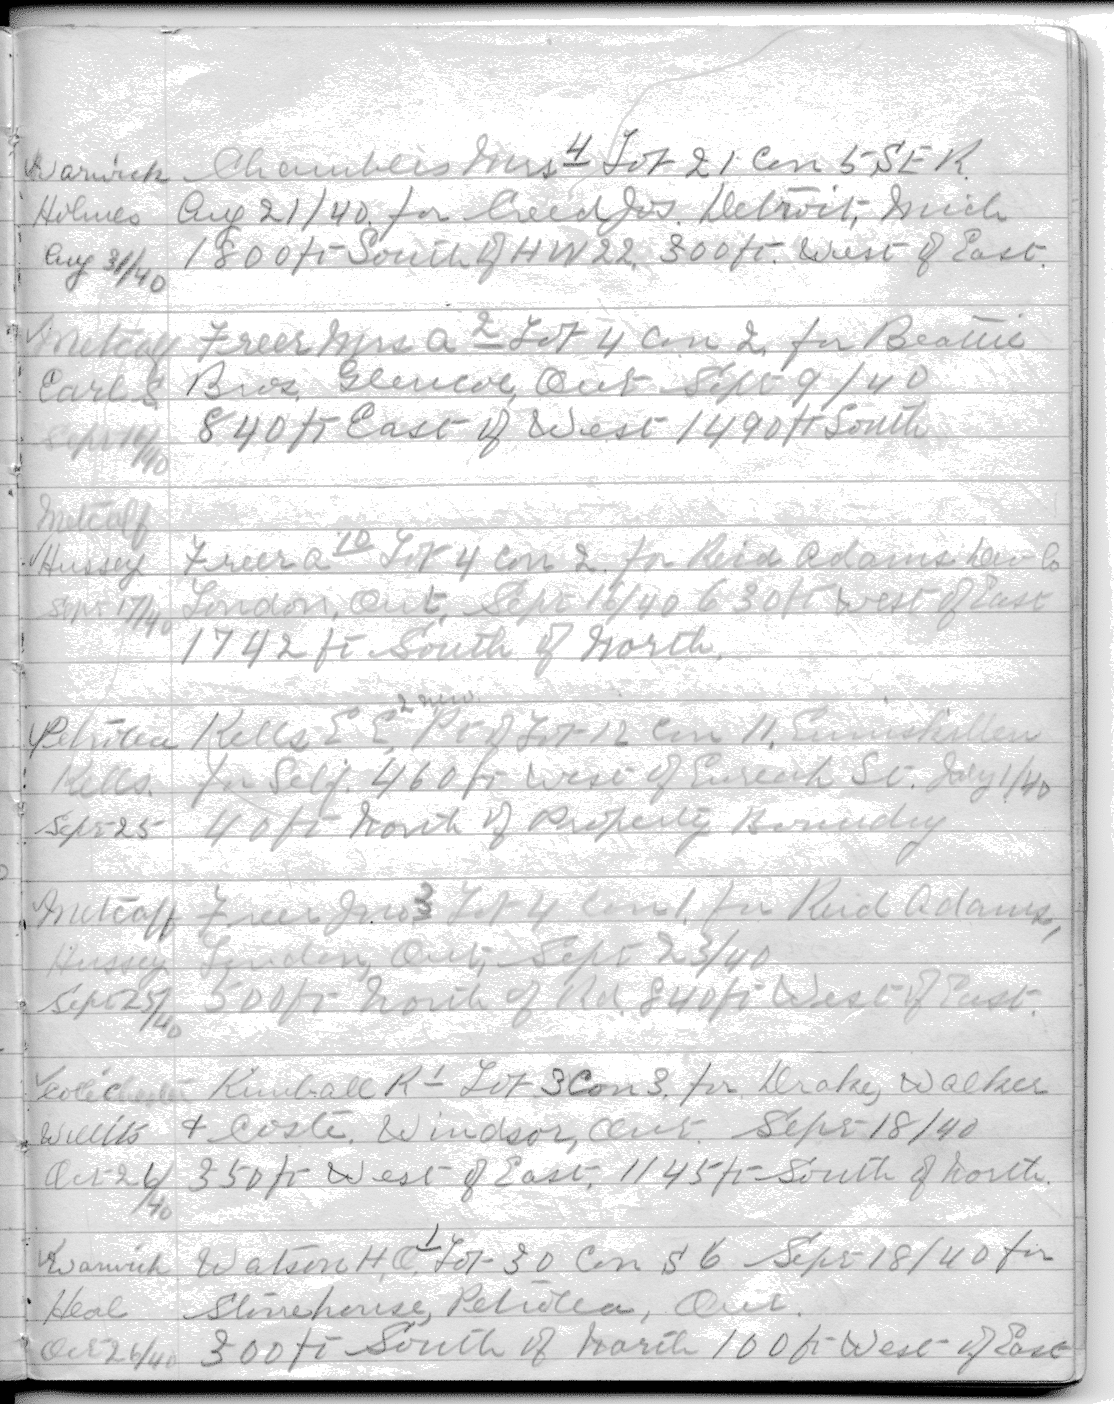 Warwick Chambers Mrs 4 Lot 21 Con 5 S E R.
Holmes Aug 21/40. for Creed Jos. Detroit, Mich
Aug 31/40 1800 ft South of HW 22, 300 ft. West of East.
Metcalf Freer Mrs A 2 Lot 4 Con 2. for Beattie
Earl S Bros. Glencoe, Ont Sept 9/40
Sept 14/40 840 ft East of West 1490 ft South
Metcalf
Hussey Freer A 10 Lot 4 Con 2. for Reid Adams Dev Co
Sept 17/40 London, Ont, Sept 16/40 630 ft West of East
1742 ft South of North.
2 new
Petrolea Kells E E, Pt of Lot 12 Con 11. Enniskillen
Kells. for Self. 460 ft West of Eureah St. July 1/40
Sept 25 40 ft North of Property Boundry
Metcalf Freer Jno 3 Lot 4 Con 1. for Reid Adams,
Hussey London, Ont, Sept 23/40
Sept 25/40 500 ft North of Rd. 840 ft West of East.
Colichester Kimball R 1 Lot 3 Con 3. for Drake, Walker
Willits + Coste. Windsor, Ont. Sept 18/40
Oct 24/40 350 ft West of East. 1145 ft South of North.
Warwick Watson H.O. 1 Lot 30 Con S 6 Sept 18/40 for
Heal Stonehouse, Petrolea, Ont.
Oct 26/40 300 ft South of North 100 ft West of East